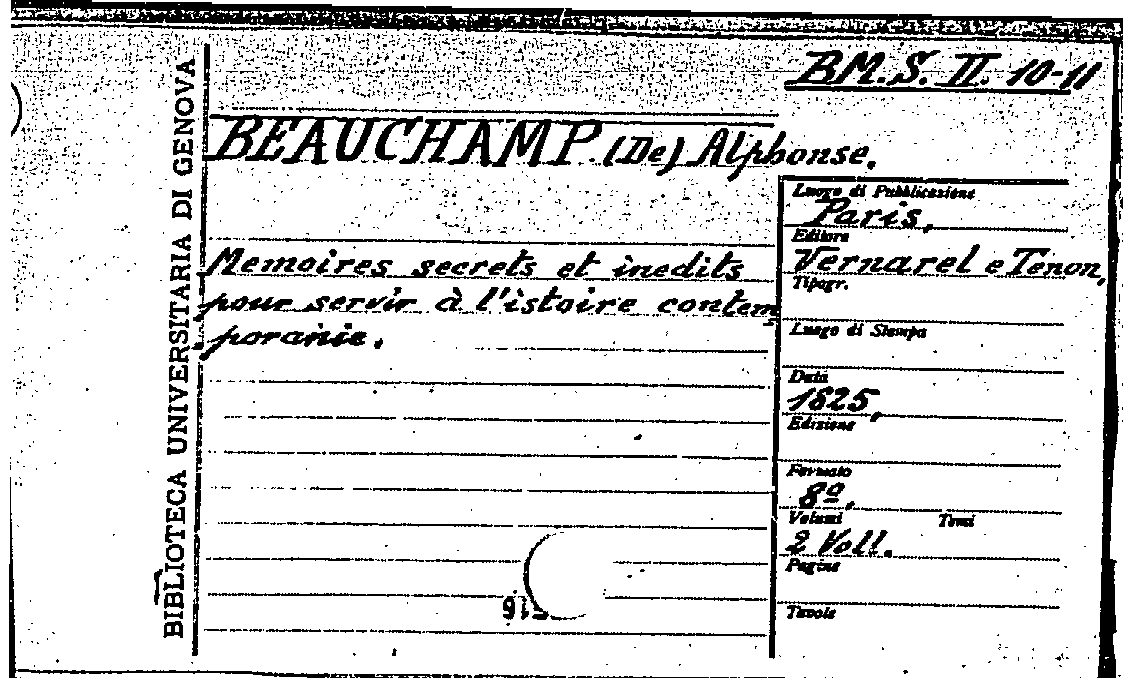 BIBLIOTECA UNIVERSITARIA DI GENOVA
BM.S. II. 10-11
BEAUCHAMP (De) Alphonse.
Memoires secrets et inedits
pour servir à l'istoire contem
poranie.
Luogo di Pubblicazione
Paris,
Editore
Vernarel e Tenon,
Tipogr.
Luogo di Stampa
Data
1825,
Edizione
Formato
8º,
Volumi Tomi
2 Voll.
Pagine
Tavole